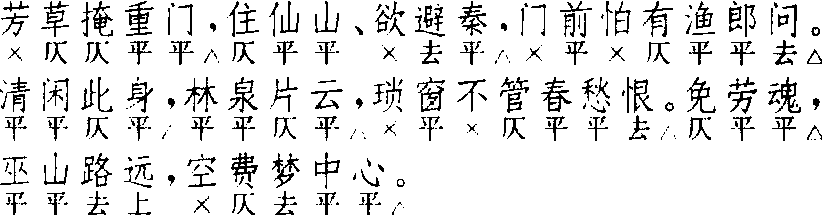 芳草掩重门,住仙山、欲避秦,门前怕有渔郎问。
×仄仄平平△仄平平 ×去平△×平×仄平平去△
清闲此身,林泉片云,琐窗不管春愁恨。免劳魂,
平平仄平△平平仄平△×平×仄平平去△仄平平△
巫山路远,空费梦中心。
平平去上 ×仄去平平△